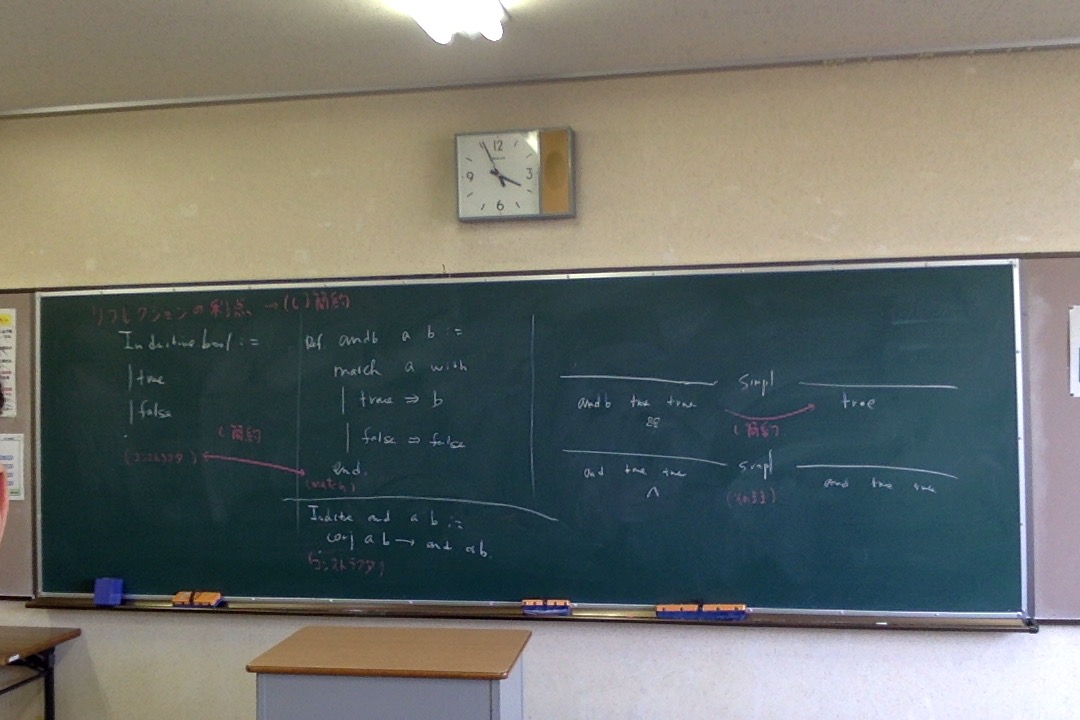 12
3
6
9
リフレクションの利点 → (ι)簡約
Inductive bool :=
|true
|false
(コンストラクタ)
ι 簡約
Def. andb a b :=
match a with
| true ⇒ b
| false ⇒ false
end.
(match)
and a b :=
conj a b → and a b.
(コンストラクタ)
andb true true
&&
simpl
ι 簡約
true
and true true
∧
simpl
(そのまま)
and true true